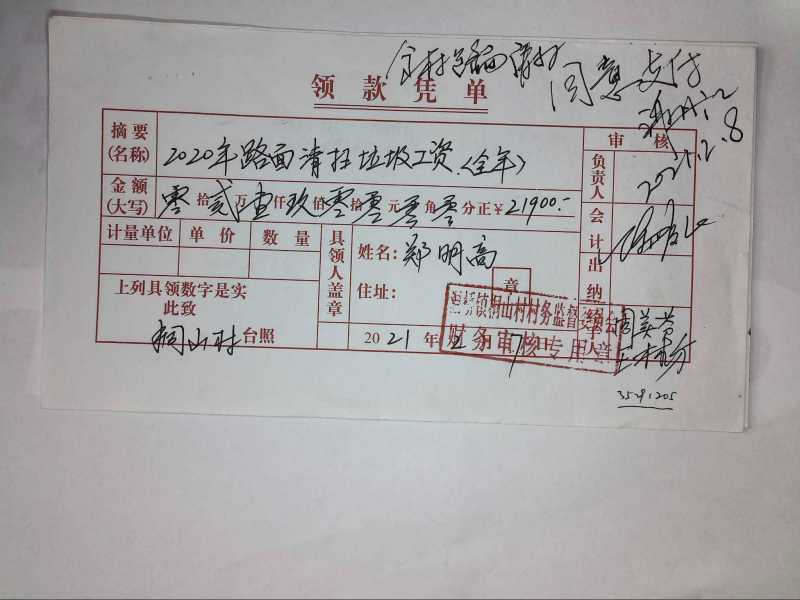 全村路面清扫
同意支付
2021.2.8
领款凭单
摘要(名称) 2020年路面清扫垃圾工资(全年)
审核
金额(大写) 零拾贰万壹仟玖佰零拾零元零角零分正￥21900.-
负责人
会计
计量单位 单价 数量
具领人盖章
姓名：郑明高
住址：
章
出纳
上列具领数字是实
此致
桐山村台照
2021年2月7日
镇桐山村村务监督委员会
财务审核专用章
周英芳
3521205